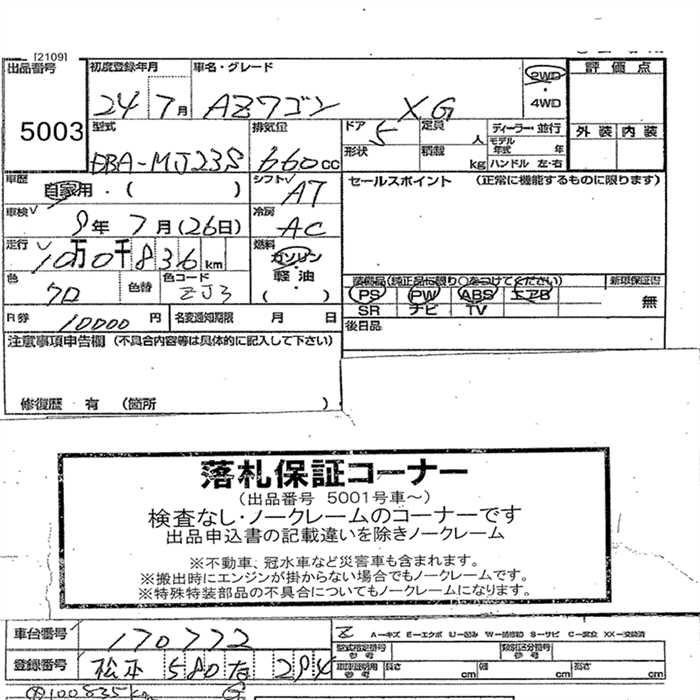 [2109]
出品番号
5003
初度登録年月
24 7月
車名・グレード
AZワゴン XG
2WD
・
4WD
評価点
外装 内装
型式
DBA-MJ23S
排気量
660cc
ドア
5
定員
人
ディーラー・並行
モデル年式 年
形状
積載
kg
ハンドル 左・右
車歴
自家用・( )
シフト
AT
セールスポイント (正常に機能するものに限ります)
車検
9年7月(26日)
冷房
AC
走行
10万0千836km
燃料
ガソリン
・
軽油
( )
色
クロ
色替
色コード
ZJ3
装備品(純正品に限り○をつけてください)
新車保証書
PS PW ABS エアB
無
SR ナビ TV
R券
10000円
名変通知期限 月 日
後日品
注意事項申告欄 (不具合内容等は具体的に記入して下さい)
修復歴 有 (箇所 )
落札保証コーナー
(出品番号 5001号車~)
検査なし・ノークレームのコーナーです
出品申込書の記載違いを除きノークレーム
※不動車、冠水車など災害車も含まれます。
※搬出時にエンジンが掛からない場合でもノークレームです。
※特殊特装部品の不具合についてもノークレームになります。
車台番号
170772
A-キズ E-エクボ U-凹み W-補修跡 S-サビ C-腐食 XX-交換済
型式指定番号
類別区分番号
登録番号
松本 580
車検証明用参考
長さ cm
幅 cm
高さ cm
100835km